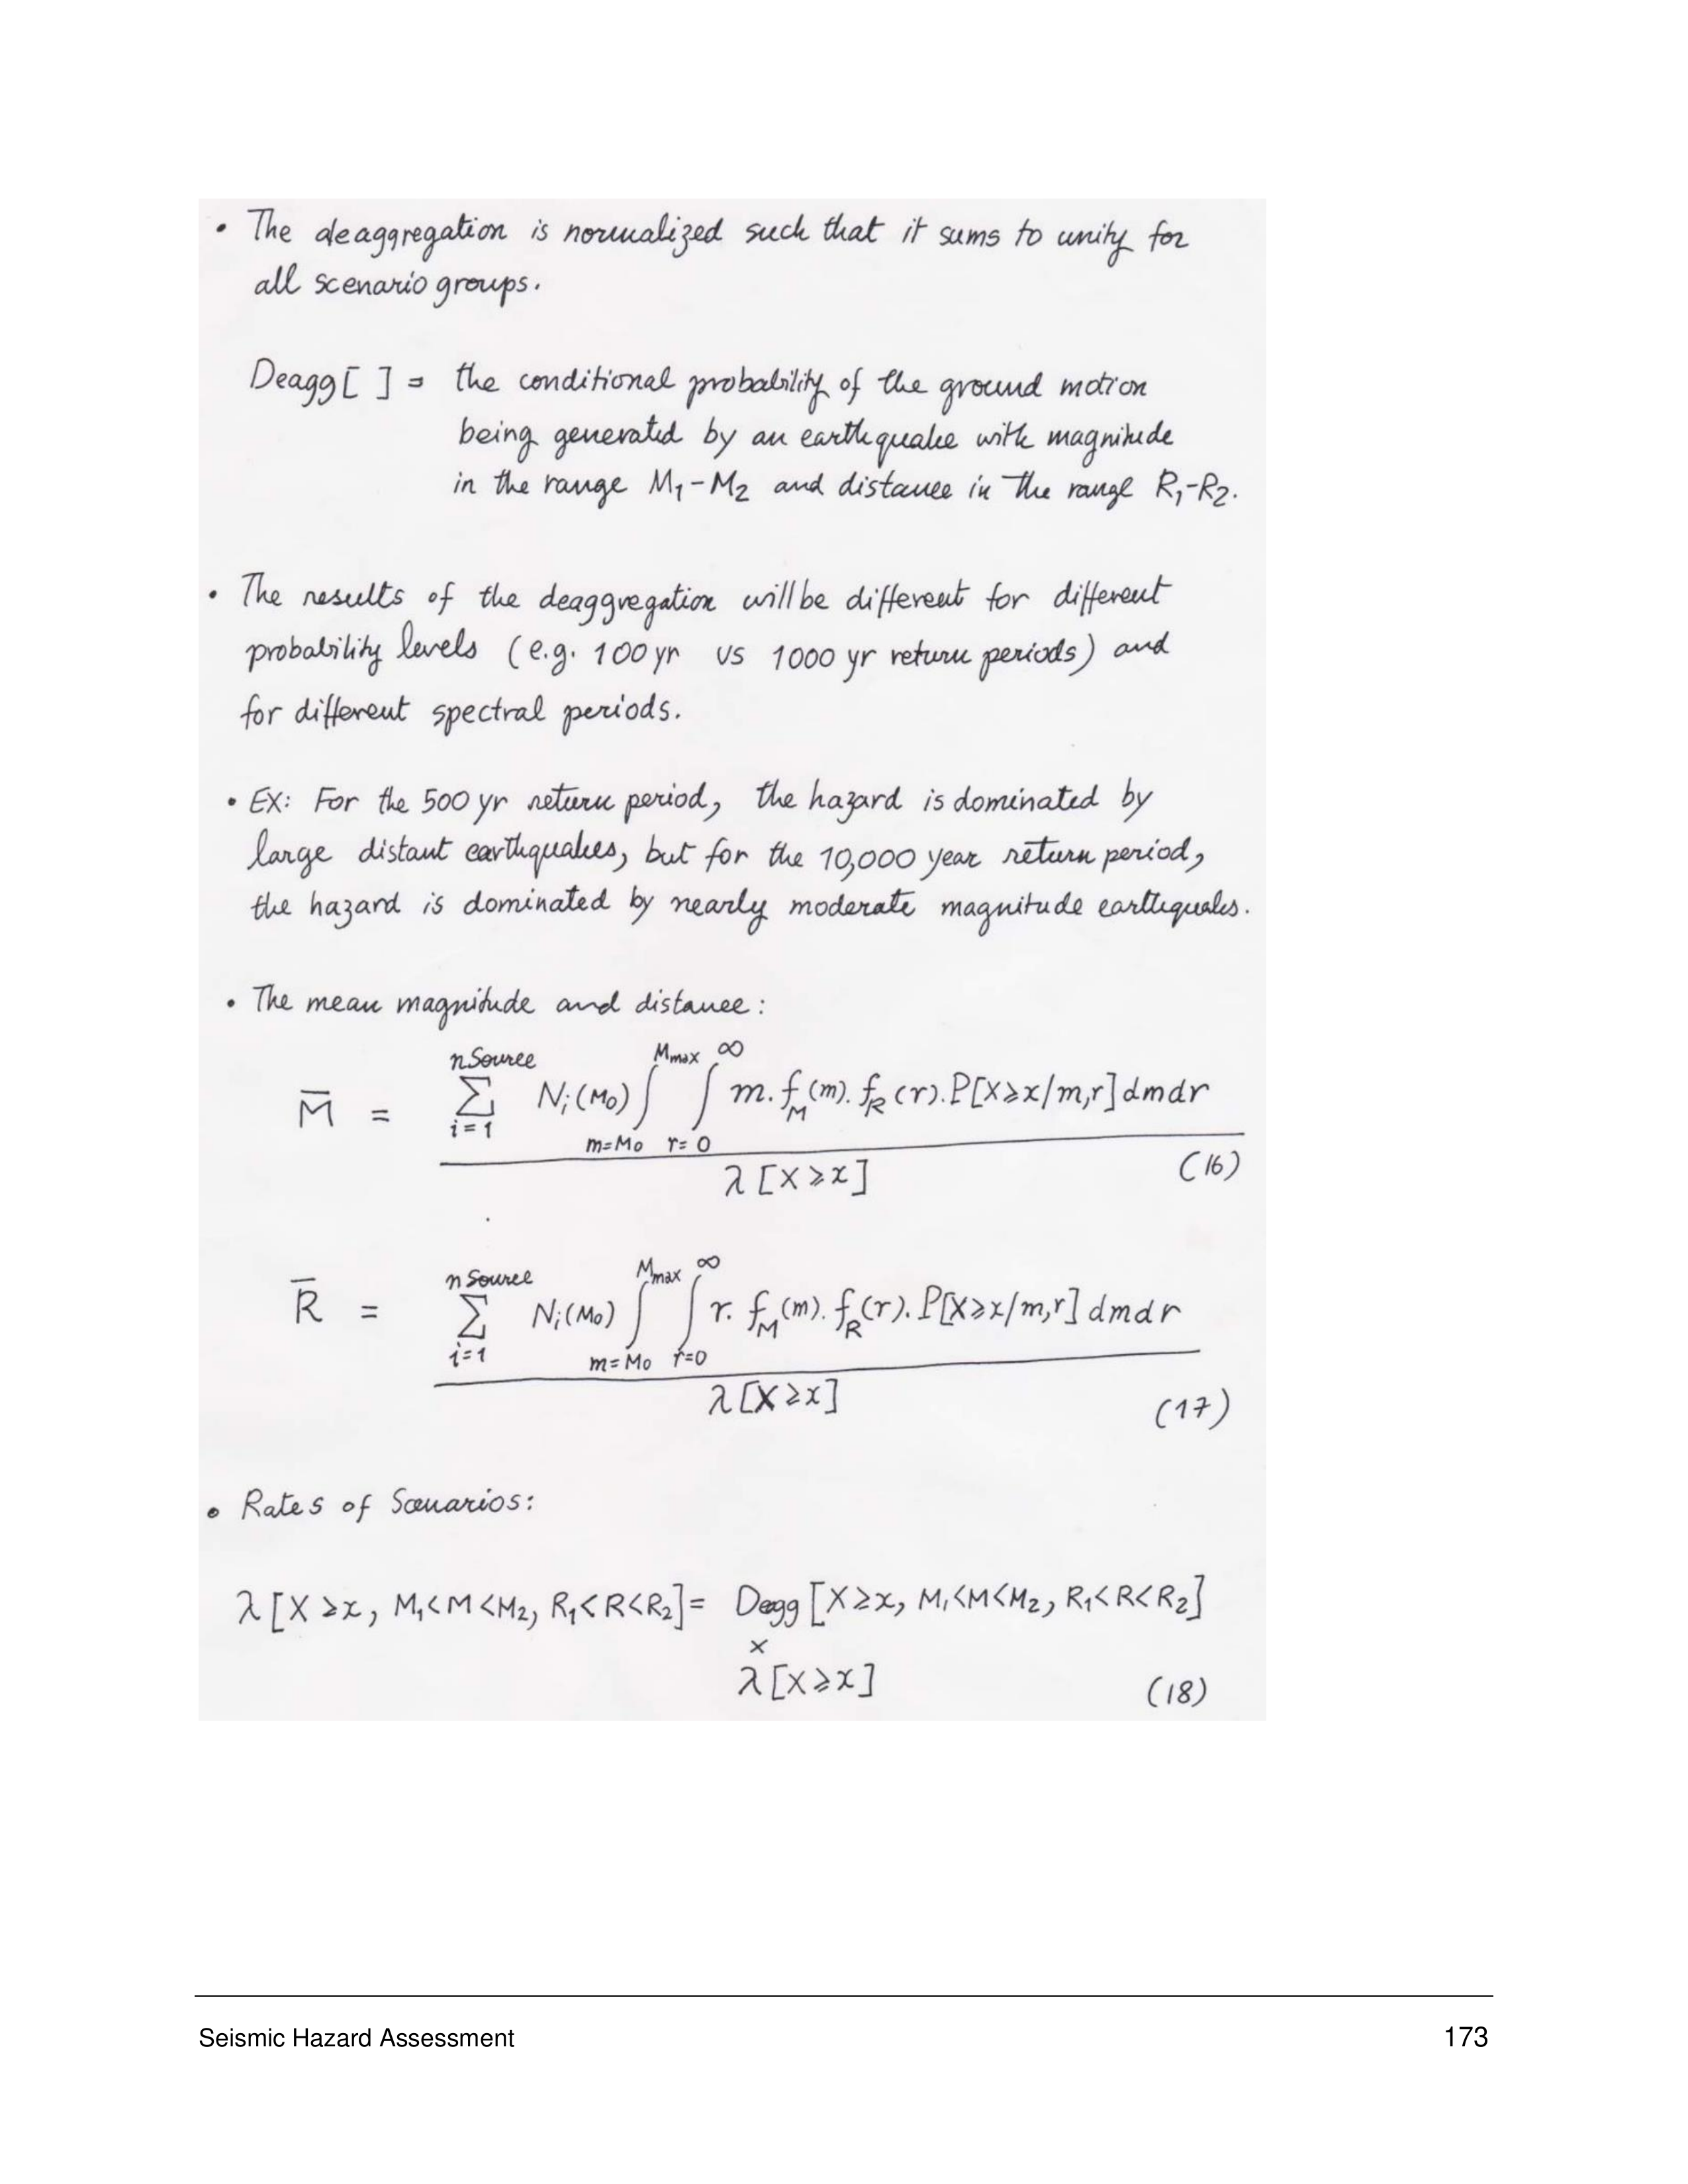 • The deaggregation is normalized such that it sums to unity for
all scenario groups.
Deagg [ ] = the conditional probability of the ground motion
being generated by an earthquake with magnitude
in the range M₁-M₂ and distance in the range R₁-R₂.
• The results of the deaggregation will be different for different
probability levels (e.g. 100 yr vs 1000 yr return periods) and
for different spectral periods.
• EX: For the 500 yr return period, the hazard is dominated by
large distant earthquakes, but for the 10,000 year return period,
the hazard is dominated by nearly moderate magnitude earthquakes.
• The mean magnitude and distance:
M̄ = ∑_{i=1}^{nSource} Nᵢ(M₀) ∫_{m=M₀}^{Mmax} ∫_{r=0}^{∞} m. f_M(m). f_R(r). P[X≥x/m,r] dmdr
λ [X≥x] (16)
R̄ = ∑_{i=1}^{nSource} Nᵢ(M₀) ∫_{m=M₀}^{Mmax} ∫_{r=0}^{∞} r. f_M(m). f_R(r). P[X≥x/m,r] dmdr
λ [X≥x]
(17)
• Rates of Scenarios:
λ [X≥x, M₁<M<M₂, R₁<R<R₂] = Degg [X≥x, M₁<M<M₂, R₁<R<R₂]
×
λ [X≥x] (18)
Seismic Hazard Assessment 173